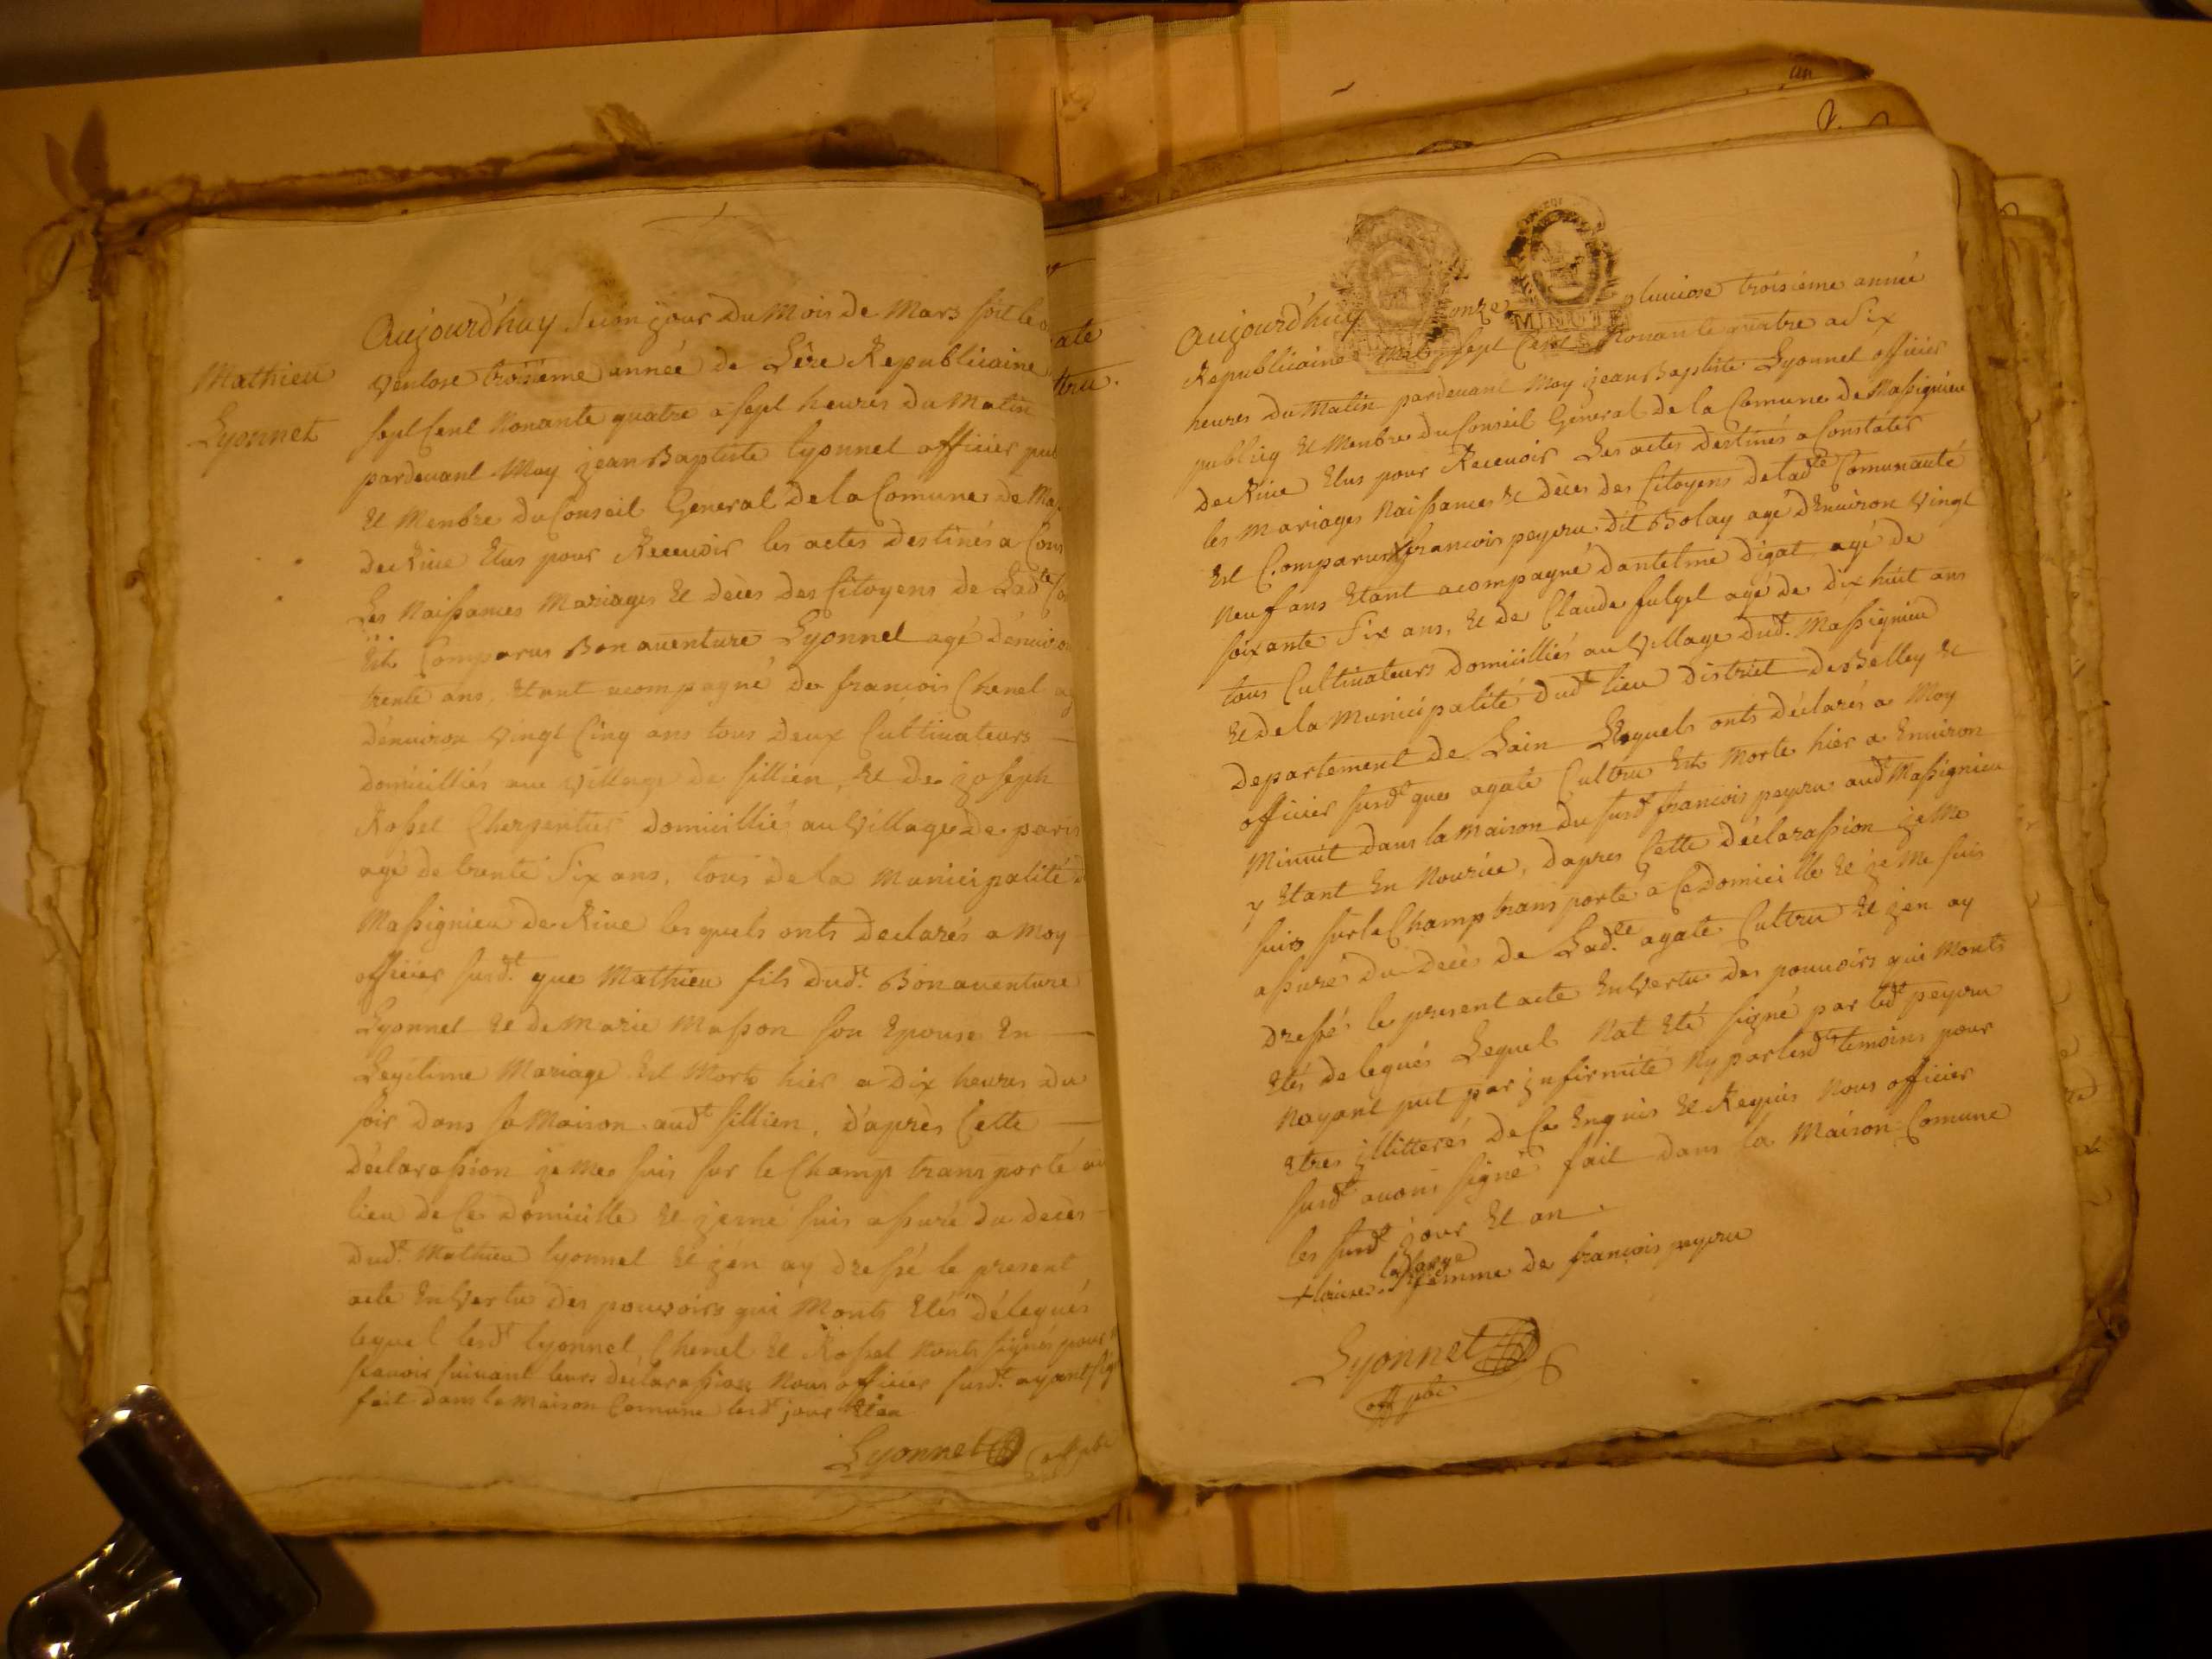 Mathieu
Lyonnet
Aujourd'huy jour du Mois de Mars soit le
ventose troisieme année de L'ère Republicaine
sept Cent Nonante quatre a sept heures du Matin
pardevant Moy jean Baptiste lyonnet officier pub
Et Menbre du Conseil General de la Comune de Ma
de Rive Elus pour Recevoir les actes destinés a Cons
Les Naissances Mariages Et decès des Citoyens de Ladte Co
Est Comparus Bonaventure Lyonnet agé d'enviro
trente ans, Etant acompagné de francois Chenel ag
d'environ vingt Cinq ans tous deux Cultivateurs
domicilliés au village de sillien, Et de joseph
Rosset Cherpentier domicillié au village de paris
agé de trente Six ans, tous de la Municipalité d
Massignieu de Rive lesquels onts declarés a Moy
officier susdt. que Mathieu fils dudt. Bonaventure
Lyonnet Et de Marie Masson son Epouse En
Legitime Mariage Est Morts hier a dix heures du
soir dans sa Maison audt sillien, d'après Cette
déclarassion je Me suis sur le Champ transporté au
lieu de Ce domicille Et je me suis assuré du decès
dudt. Mathieu lyonnet Et jen ay dressé le present
acte En Vertu des pouvoirs qui Monts Etés délegués
lequel lesdt lyonnet, Chenel Et Rosset Nonts signés pour
scavoir suivant leurs déclarassion Nous officier susdt. ayant sig
fait dans la Maison Comune lesdt jour Et an
Lyonnet off pbc
ate
tru.
Aujourd'huy onze pluviose troisième année
Republicaine Mil sept Cent Nonante quatre a Six
heures du Matin pardevant Moy jean Baptiste Lyonnet officier
publicq Et Menbre du Conseil Géneral de la Comune de Massignieu
de Rive Elus pour Recevoir Les actes destinés a Constater
les Mariages Naissances Et décès des Citoyens de ladte Comunauté
Est Comparus + francois peyeru dit Bolay agé d'Environ Vingt
Neuf ans Etant acompagné dantelme digat agé de
soixante Six ans, Et de Claude fulget agé de dix huit ans
tous Cultivateurs domicilliés au Village dudt. Massignieu
Et de la Municipalité dudt lieu district de Belley Et
departement de Lain Lesquels onts déclarés a Moy
officier susdt que agate Cultru Est Morte hier a Environ
Minuit dans la Maison du susdt francois peyeru audt Massignieu
y Etant En Nourice, dapres Cette déclarassion je Me
suis sur le Champ transporté a Ce domicille Et je Me suis
assuré du decè de Ladte. agate Cultru Et jen ay
dressé le present acte En Vertu des pouvoirs qui Monts
Etés delegués Lequel Nat Eté signé par ledt peyeru
Nayant put par jnfirmité Ny par lesdts temoins pour
Etres jllitterés de Ce Enquis Et Requis Nous officier
susdt avons signé fait dans la Maison Comune
les susdt jour Et an.
femme de francois peyeru
Lyonnet
off pbc
MINUT